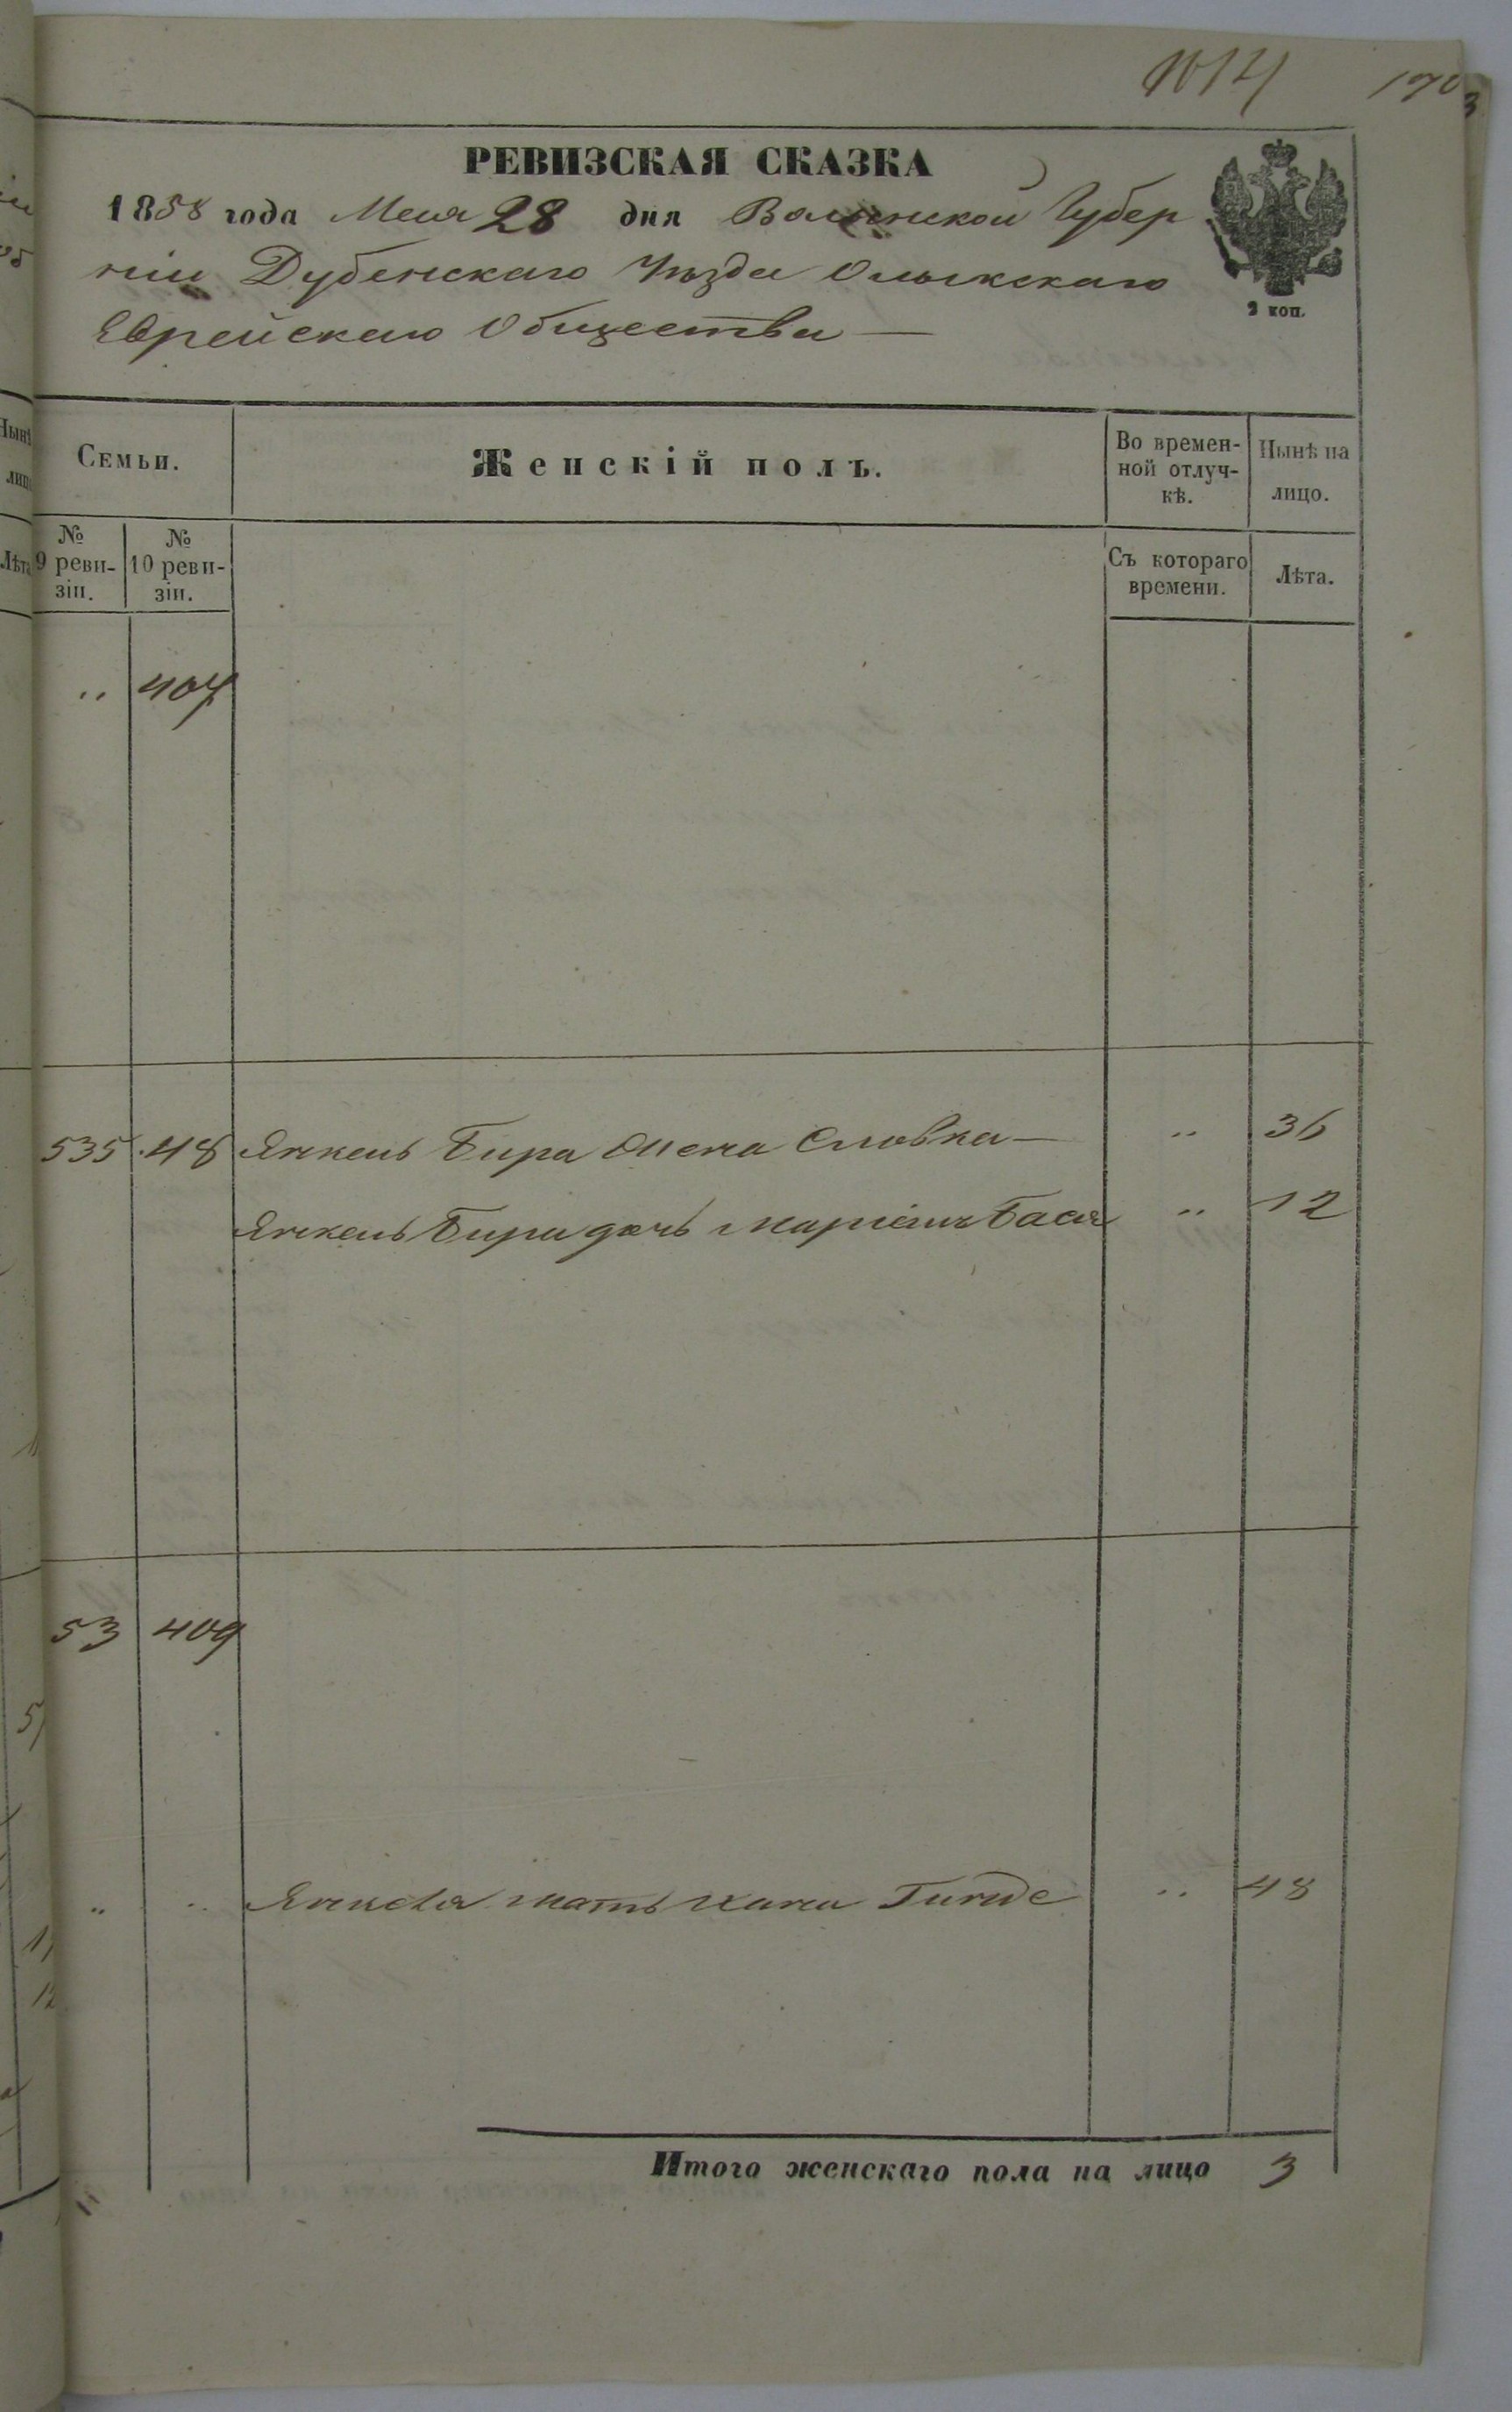 1014 170
3
РЕВИЗСКАЯ СКАЗКА
1858 года Мая 28 дня Волынской Губер
ніи Дубенскаго Уѣзда Олыкскаго
Еврейскаго Общества —
2 коп.
Семьи.
Женскій полъ.
Во времен-
ной отлуч-
кѣ.
Нынѣ на
лицо.
№
9 реви-
зіи.
№
10 реви-
зіи.
Съ котораго
времени.
Лѣта.
.. 407
535 418 Янкель Бира Жена Словка — .. 36
Янкель Бира дочь Маріамъ Бася .. 12
53 409
.. .. Янкеля мать Хана Гинде .. 48
Итого женскаго пола на лицо 3